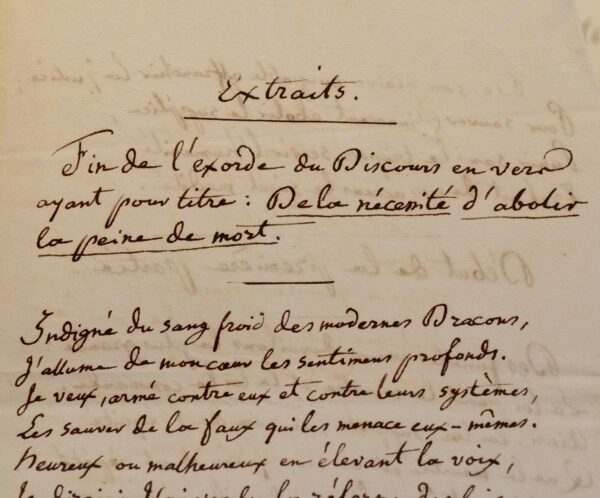 Extraits.
Fin de l'exorde du Discours en vers
ayant pour titre : De la nécessité d'abolir
la peine de mort.
Indigné du sang froid des modernes Dracons,
J'allume de mon cœur les sentimens profonds.
Je veux, armé contre eux et contre leurs systèmes,
Les sauver de la faux qui les menace eux-mêmes.
Heureux ou malheureux en élevant la voix,
la réforme